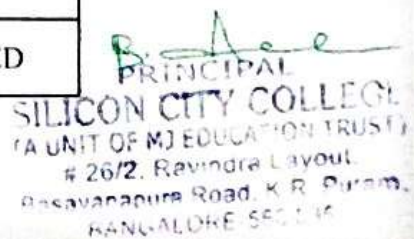 ED
PRINCIPAL
SILICON CITY COLLEGE
(A UNIT OF MJ EDUCATION TRUST)
# 26/2, Ravindra Layout
Basavanapura Road, K.R. Puram,
BANGALORE